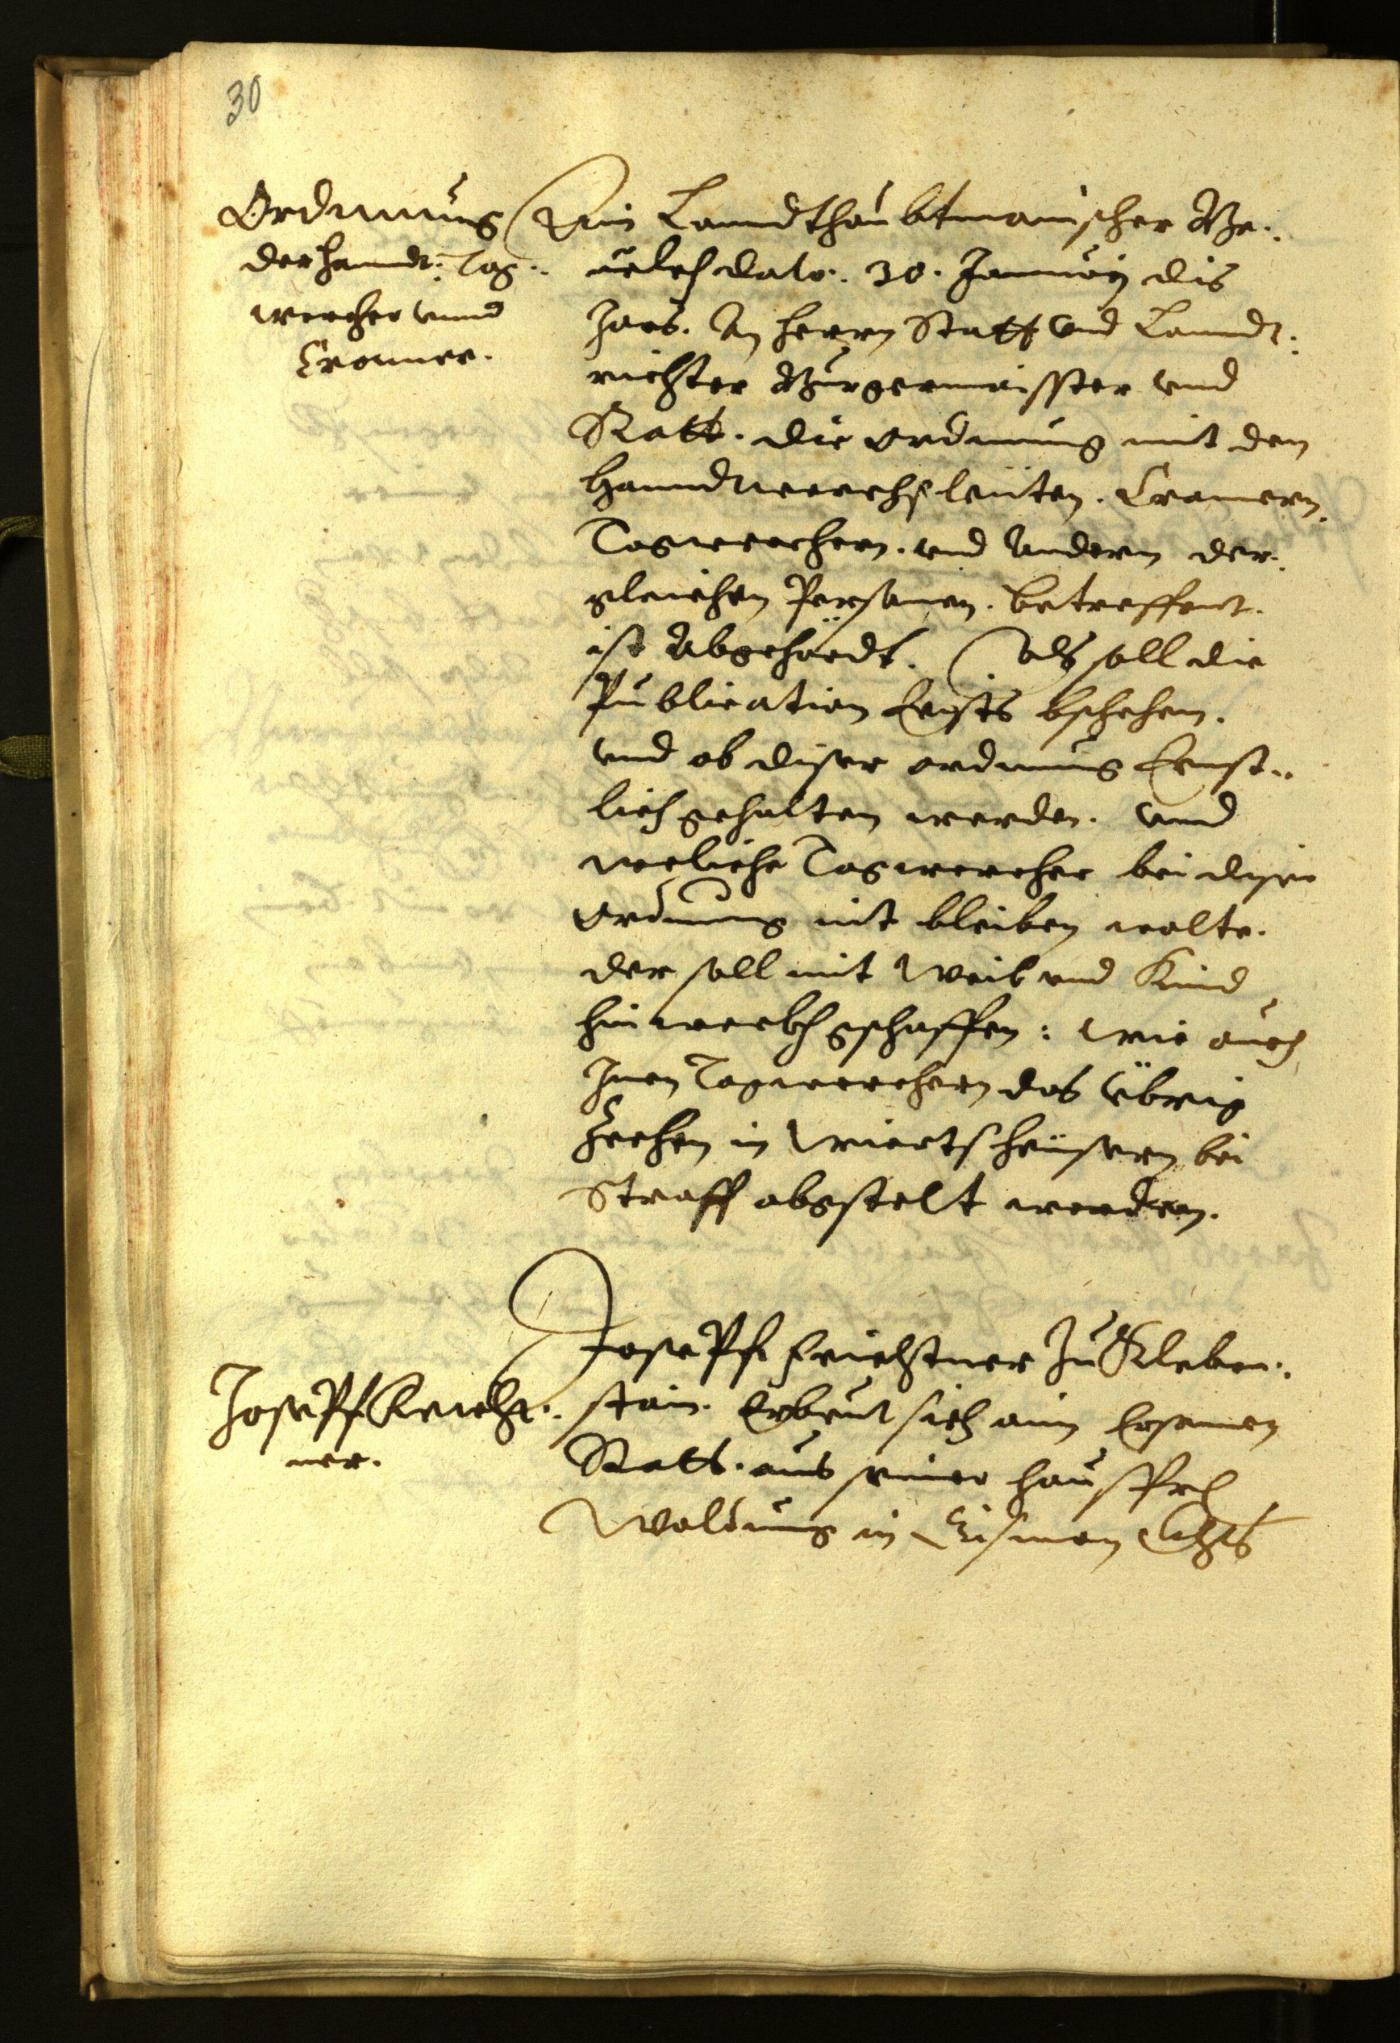 30
Ordnnung
der Hanndt: Tag:
wercher unnd
Cramer.
Ain Lanndthaubtmanischer Be:
uelch dato. 30. January dis
Jars. An herrn Statt und Lanndt:
richter Burgermaisster und
Ratt. die ordnung mit den
Hanndtwerchsleüten. Cramern.
Tagwerchern. und Andern der:
gleichen Personen. betreffent.
ist Abgehördt. Als soll die
Publication Ersts bschehen.
und ob diser ordnung Ernst:
lich gehalten werden. unnd
weliche Tagwercher bei diser
ordnung nit bleiben wolte.
der soll mit Weib und Kind
hinweckh gschaffen: wie auch
Inen Tagwerchern das übrig
Zechen in Wiertsheüsern bei
Straff abgstelt werden.
Joseph Feichtner
ner.
Joseph Feichtner Zu Kleben:
stain. Erbeut sich aim Ersamen
Ratt. aus seiner
Waldung in